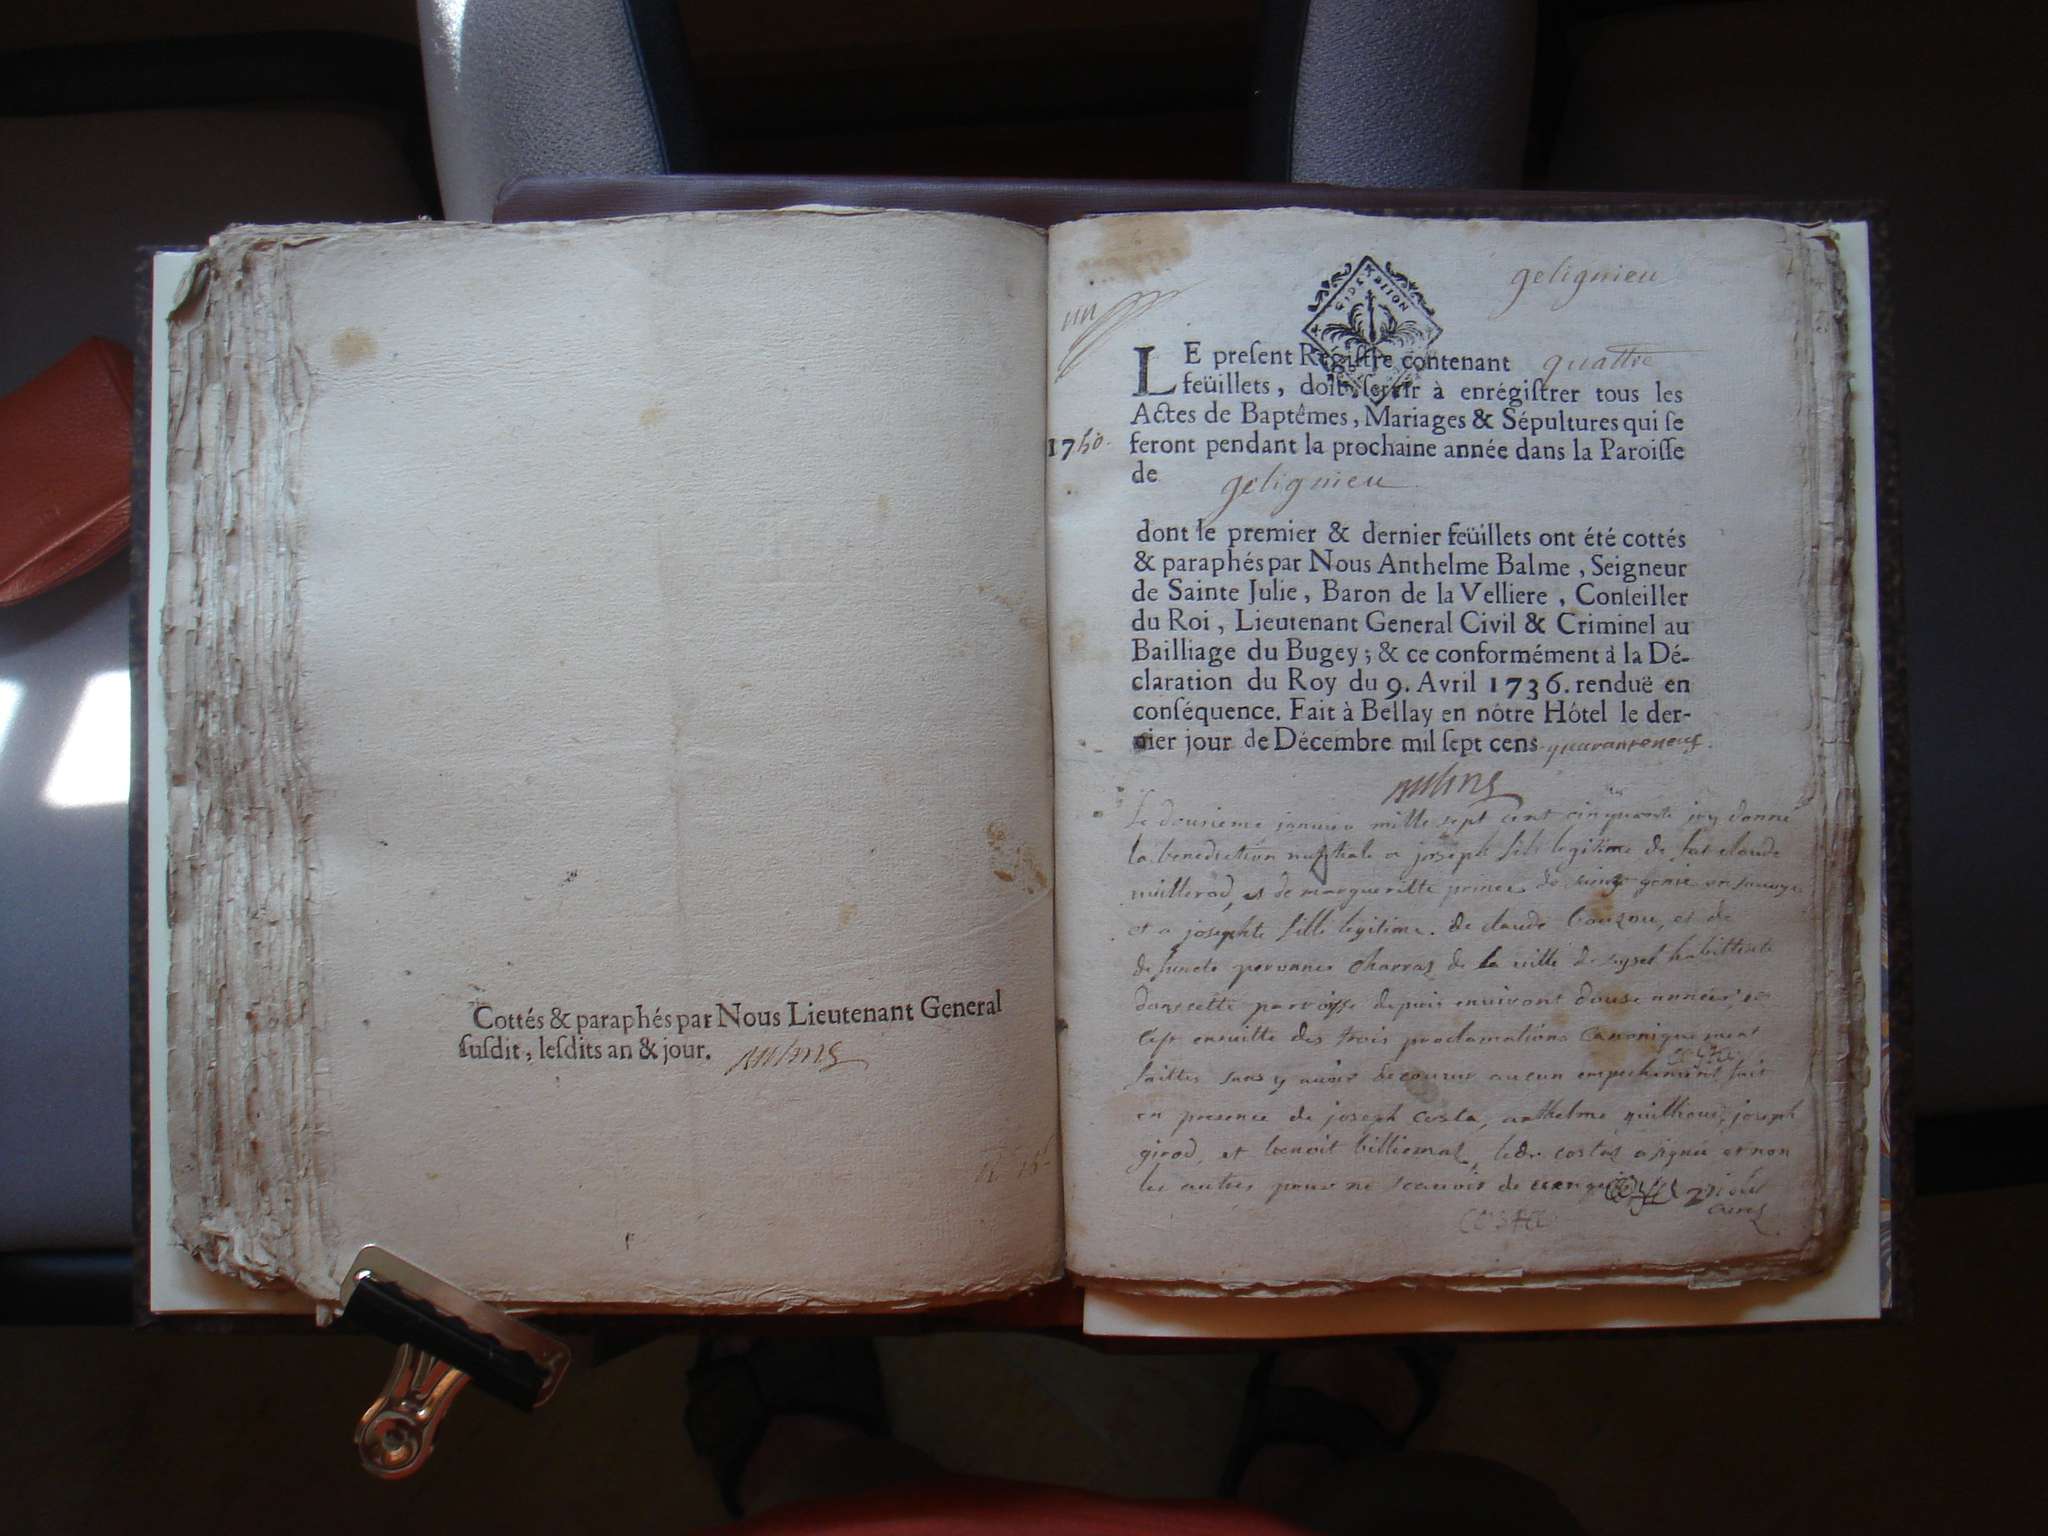 Cottés & paraphés par Nous Lieutenant General
susdit, lesdits an & jour.
un
gelignieu
G. DE DIJON
LE present Registre contenant quattre
feüillets, doit servir à enrégistrer tous les
Actes de Baptêmes, Mariages & Sépultures qui se
1750. feront pendant la prochaine année dans la Paroisse
de gelignieu
dont le premier & dernier feüillets ont été cottés
& paraphés par Nous Anthelme Balme, Seigneur
de Sainte Julie, Baron de la Velliere, Conseiller
du Roi, Lieutenant General Civil & Criminel au
Bailliage du Bugey; & ce conformément à la Dé-
claration du Roy du 9. Avril 1736. renduë en
conséquence. Fait à Bellay en nôtre Hôtel le der-
nier jour de Décembre mil sept cens quaranteneuf.
Le dousieme janvier mille sept cent cinquante jay donné
la benediction nuptiale a joseph fils legitime de fut claude
et de margueritte de genie en
et a josephte fille legitime de claude et de
de la ville de seysel habittante
dans cette paroisse depuis environt douse années
cest ensuitte des trois proclamations canoniquement
faittes sans y avoir decouvert aucun empechement fait
en presence de joseph costa, anthelme joseph
girod, et benoit ledt costaz a signé et non
les autres pour ne scavoir de ce enquis
costa curez